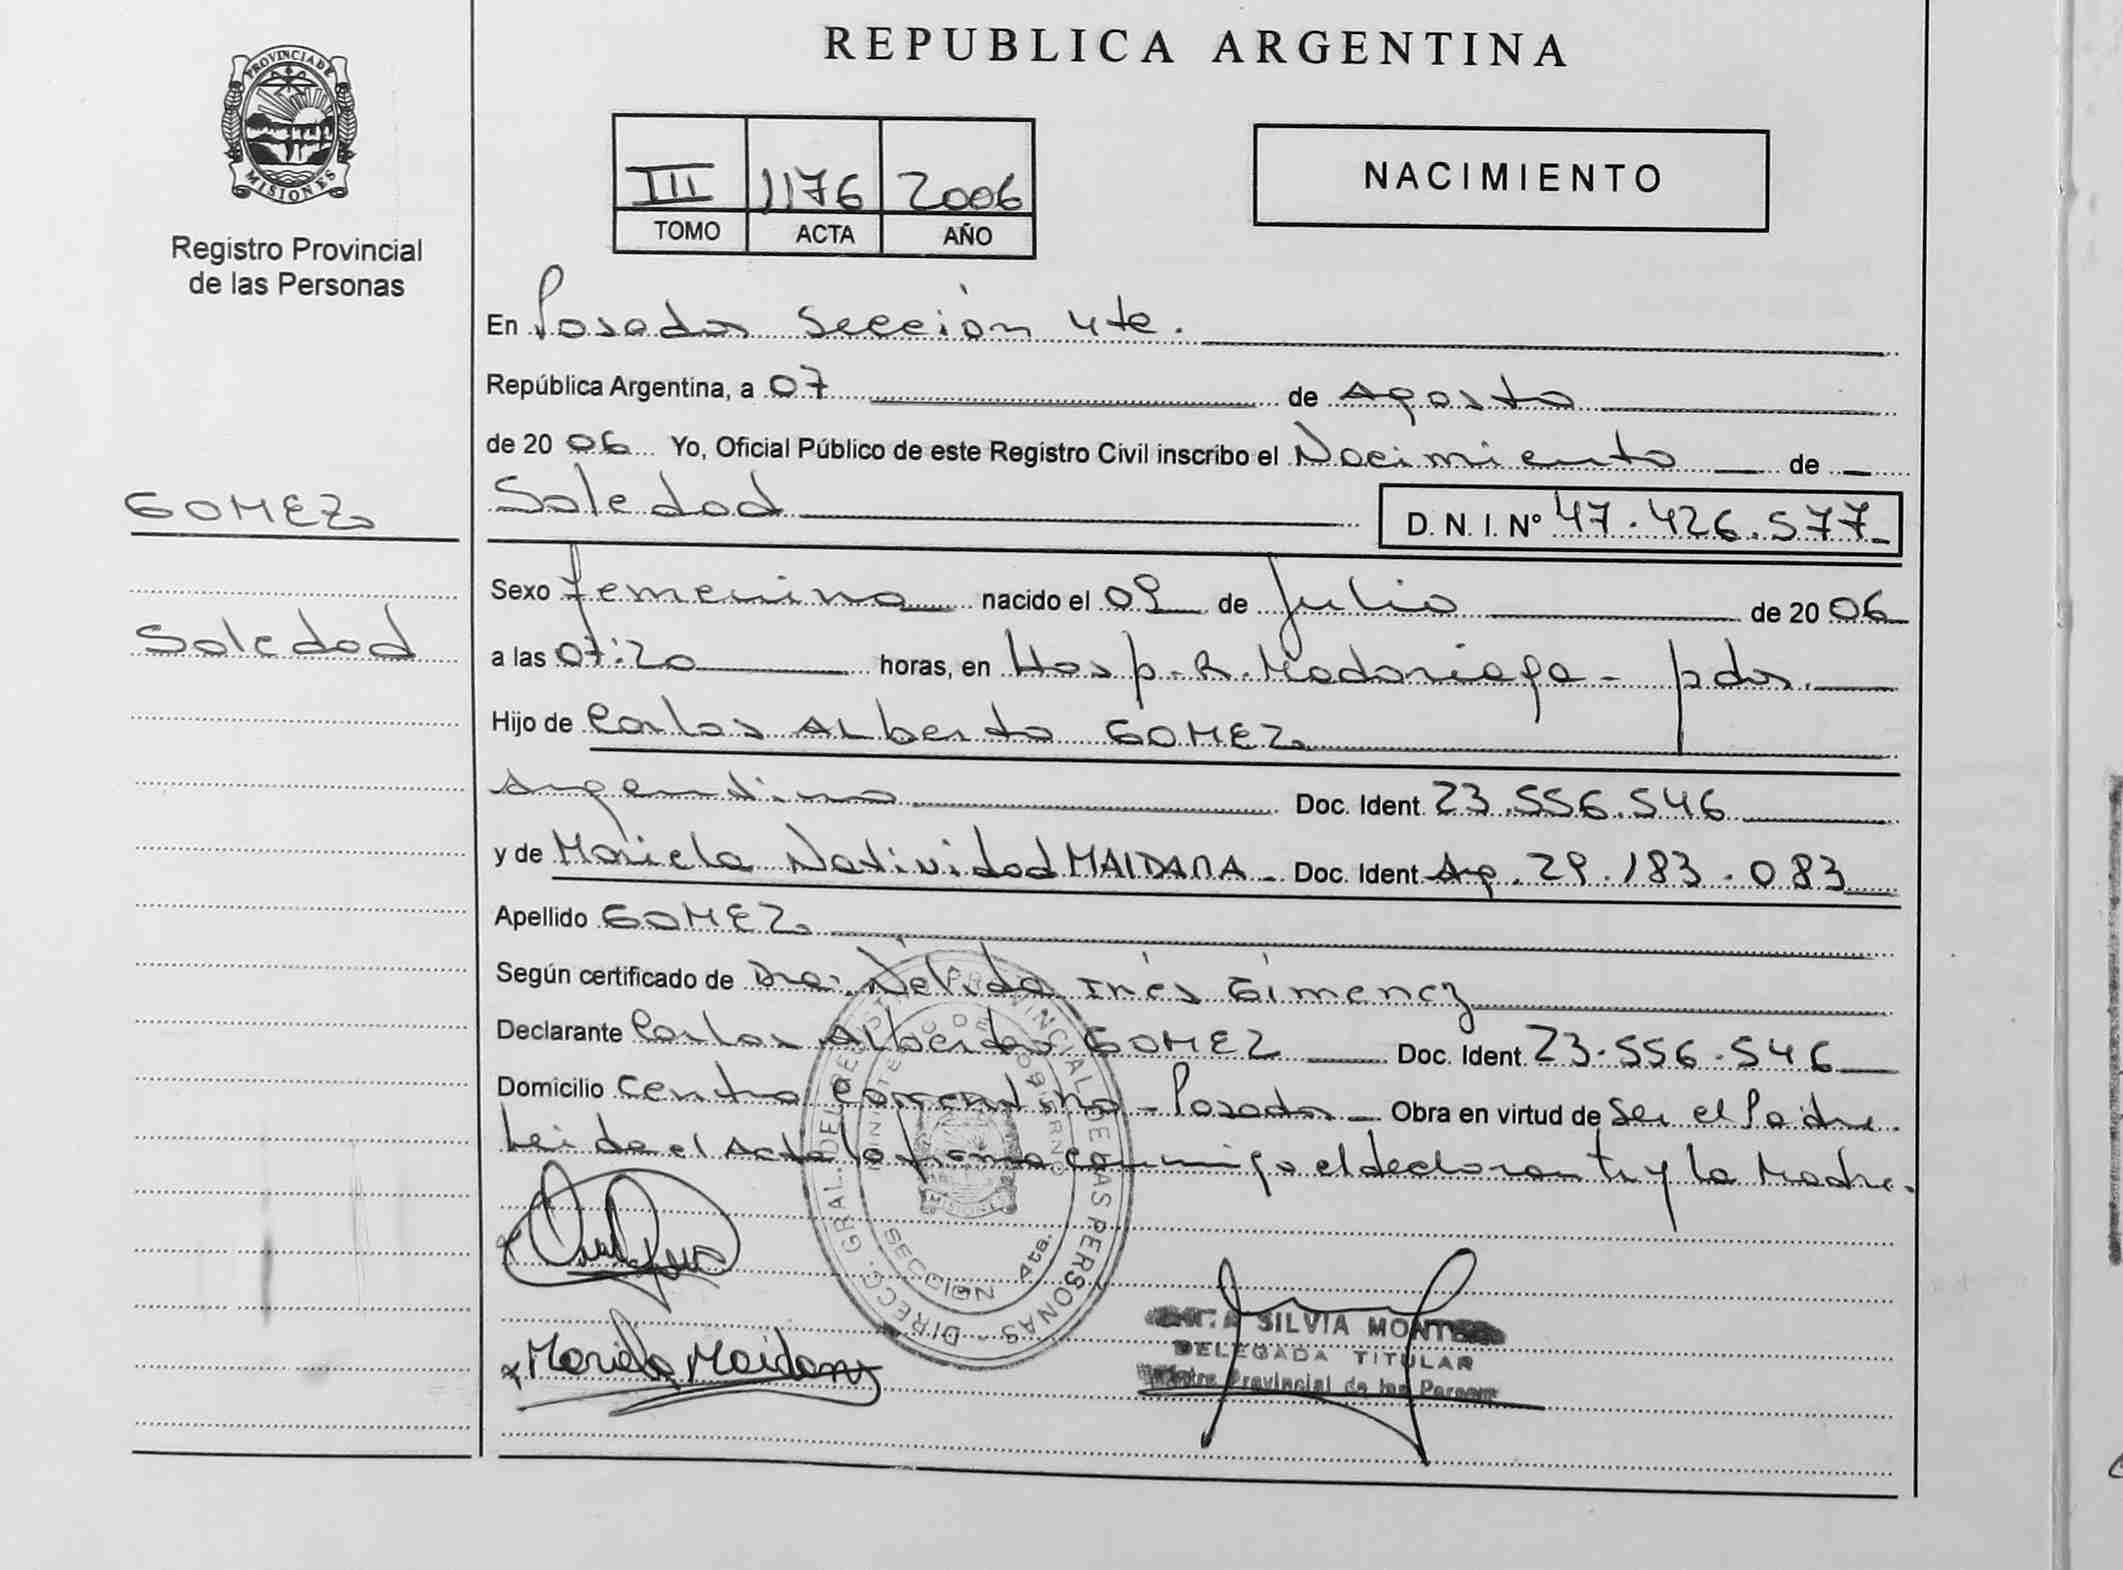 REPUBLICA ARGENTINA
PROVINCIA DE
MISIONES
Registro Provincial
de las Personas
III 1176 2006
TOMO ACTA AÑO
NACIMIENTO
En Posadas Sección 4ta.
República Argentina, a 07 de Agosto
de 2006 Yo, Oficial Público de este Registro Civil inscribo el Nacimiento de
GOMEZ
Soledad
Soledad D. N. I. Nº 47.426.577
Sexo femenino nacido el 09 de Julio de 2006
a las 07:20 horas, en Hosp. R. Madariaga - pdas.
Hijo de Carlos Alberto GOMEZ
Argentino Doc. Ident. 23.556.546
y de Mariela Natividad MAIDANA - Doc. Ident. Arg. 29.183.083
Apellido GOMEZ
Según certificado de Dra. Nélida Inés Gimenez
Declarante Carlos Alberto GOMEZ Doc. Ident. 23.556.546
Domicilio Centro - Posadas - Obra en virtud de Ser el Padre.
Leida el Acta la firma conmigo el declarante y la Madre.
DIRECC. GRAL. DEL REGISTRO PROVINCIAL DE LAS PERSONAS
MINISTERIO DE GOBIERNO
SECCION 4ta.
MISIONES
Mariela Maidana
SILVIA
DELEGADA TITULAR
Provincial de las